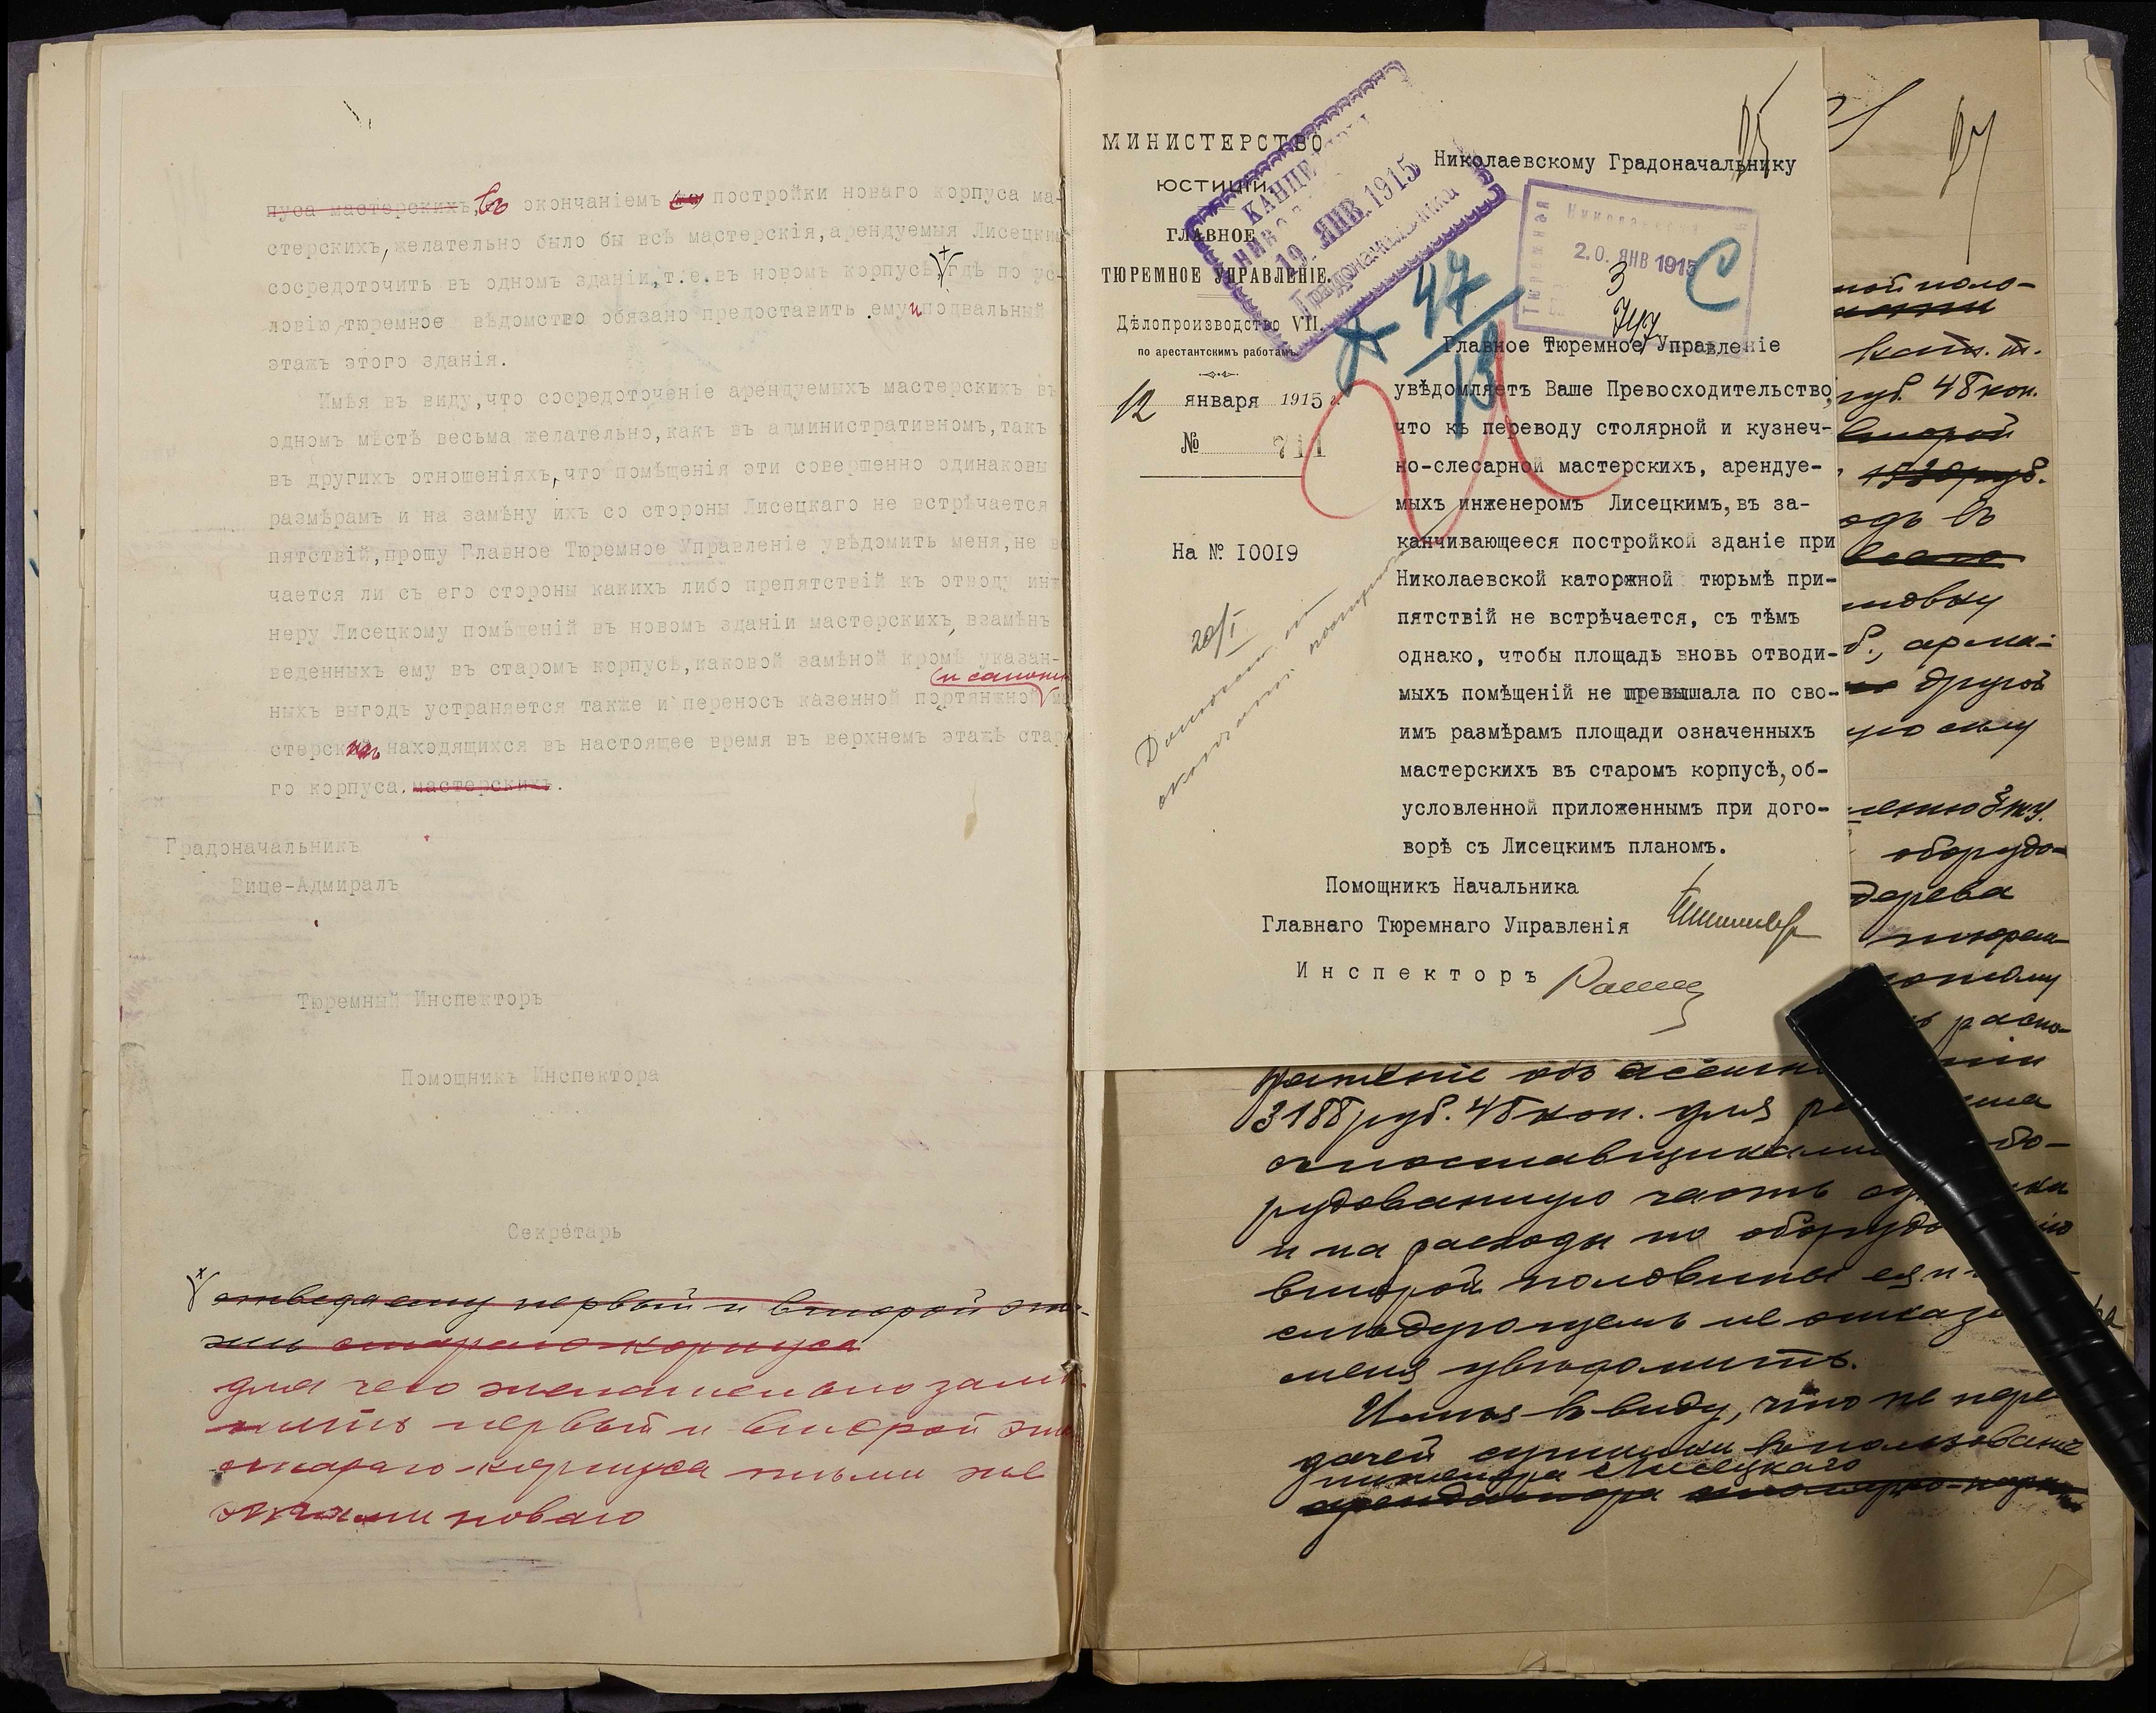 пуса мастерскихъ, Съ окончаніемъ постройки новаго корпуса ма-
стерскихъ, желательно было бы всѣ мастерскія, арендуемыя Лисецкимъ
сосредоточить въ одномъ зданіи, т.е. въ новомъ корпусѣ, гдѣ по ус-
ловію тюремное вѣдомство обязано предоставить ему и подвальный
этажъ этого зданія.
Имѣя въ виду, что сосредоточеніе арендуемыхъ мастерскихъ въ
одномъ мѣстѣ весьма желательно, какъ въ административномъ, такъ
въ другихъ отношеніяхъ, что помѣщенія эти совершенно одинаковы
размѣрамъ и на замѣну ихъ со стороны Лисецкаго не встрѣчается
пятствій, прошу Главное Тюремное Управленіе увѣдомить меня, не в
чается ли съ его стороны какихъ либо препятствій къ отводу инж
неру Лисецкому помѣщеній въ новомъ зданіи мастерскихъ, взамѣнъ
веденныхъ ему въ старомъ корпусѣ, каковой замѣной кромѣ указан-
(и сапожн
ныхъ выгодъ устраняется также и переносъ казенной портянжной м
стерскихъ находящихся въ настоящее время въ верхнемъ этажѣ стар
го корпуса. мастерскихъ.
Градоначальникъ
Вице-Адмиралъ
Тюремный Инспекторъ
Помощникъ Инспектора
Секретарь
отведа ему первый и второй эта-
жи стараго корпуса
для чего желательно замѣ-
нить первый и второй эта
стараго корпуса тѣми же
этажами новаго
25
МИНИСТЕРСТВО
ЮСТИЦІИ.
ГЛАВНОЕ
ТЮРЕМНОЕ УПРАВЛЕНІЕ.
Дѣлопроизводство VII
по арестантскимъ работамъ.
12 января 1915 г.
№ 711
На № 10019
19. ЯНВ. 1915
Градоначальника
Николаевскому Градоначальнику
Тюремная
20. ЯНВ 1915
3
747
С
47
13
Главное Тюремное Управленіе
увѣдомляетъ Ваше Превосходительство,
что къ переводу столярной и кузнеч-
но-слесарной мастерскихъ, арендуе-
мыхъ инженеромъ Лисецкимъ, въ за-
канчивающееся постройкой зданіе при
Николаевской каторжной тюрьмѣ при-
пятствій не встрѣчается, съ тѣмъ
однако, чтобы площадь вновь отводи-
мыхъ помѣщеній не превышала по сво-
имъ размѣрамъ площади означенныхъ
мастерскихъ въ старомъ корпусѣ, об-
условленной приложеннымъ при дого-
ворѣ съ Лисецкимъ планомъ.
20/I
Помощникъ Начальника
Главнаго Тюремнаго Управленія
Инспекторъ
27
ной поло-
руб. 48 коп.
второй
1920 руб.
одъ въ
б., арма-
другой
ую силу
оборудо-
дерева
распо-
ряженіе объ
3188 руб. 48 коп. для
съ поставщиками обо-
рудованную часть сушилки
и на расходы по оборудованію
второй половины ея и
слѣдующемъ не отказать
меня увѣдомить.
Имѣя въ виду, что не пере
дачей сушилки въ пользованіе
инженера Лисецкаго
арендатора столярно-